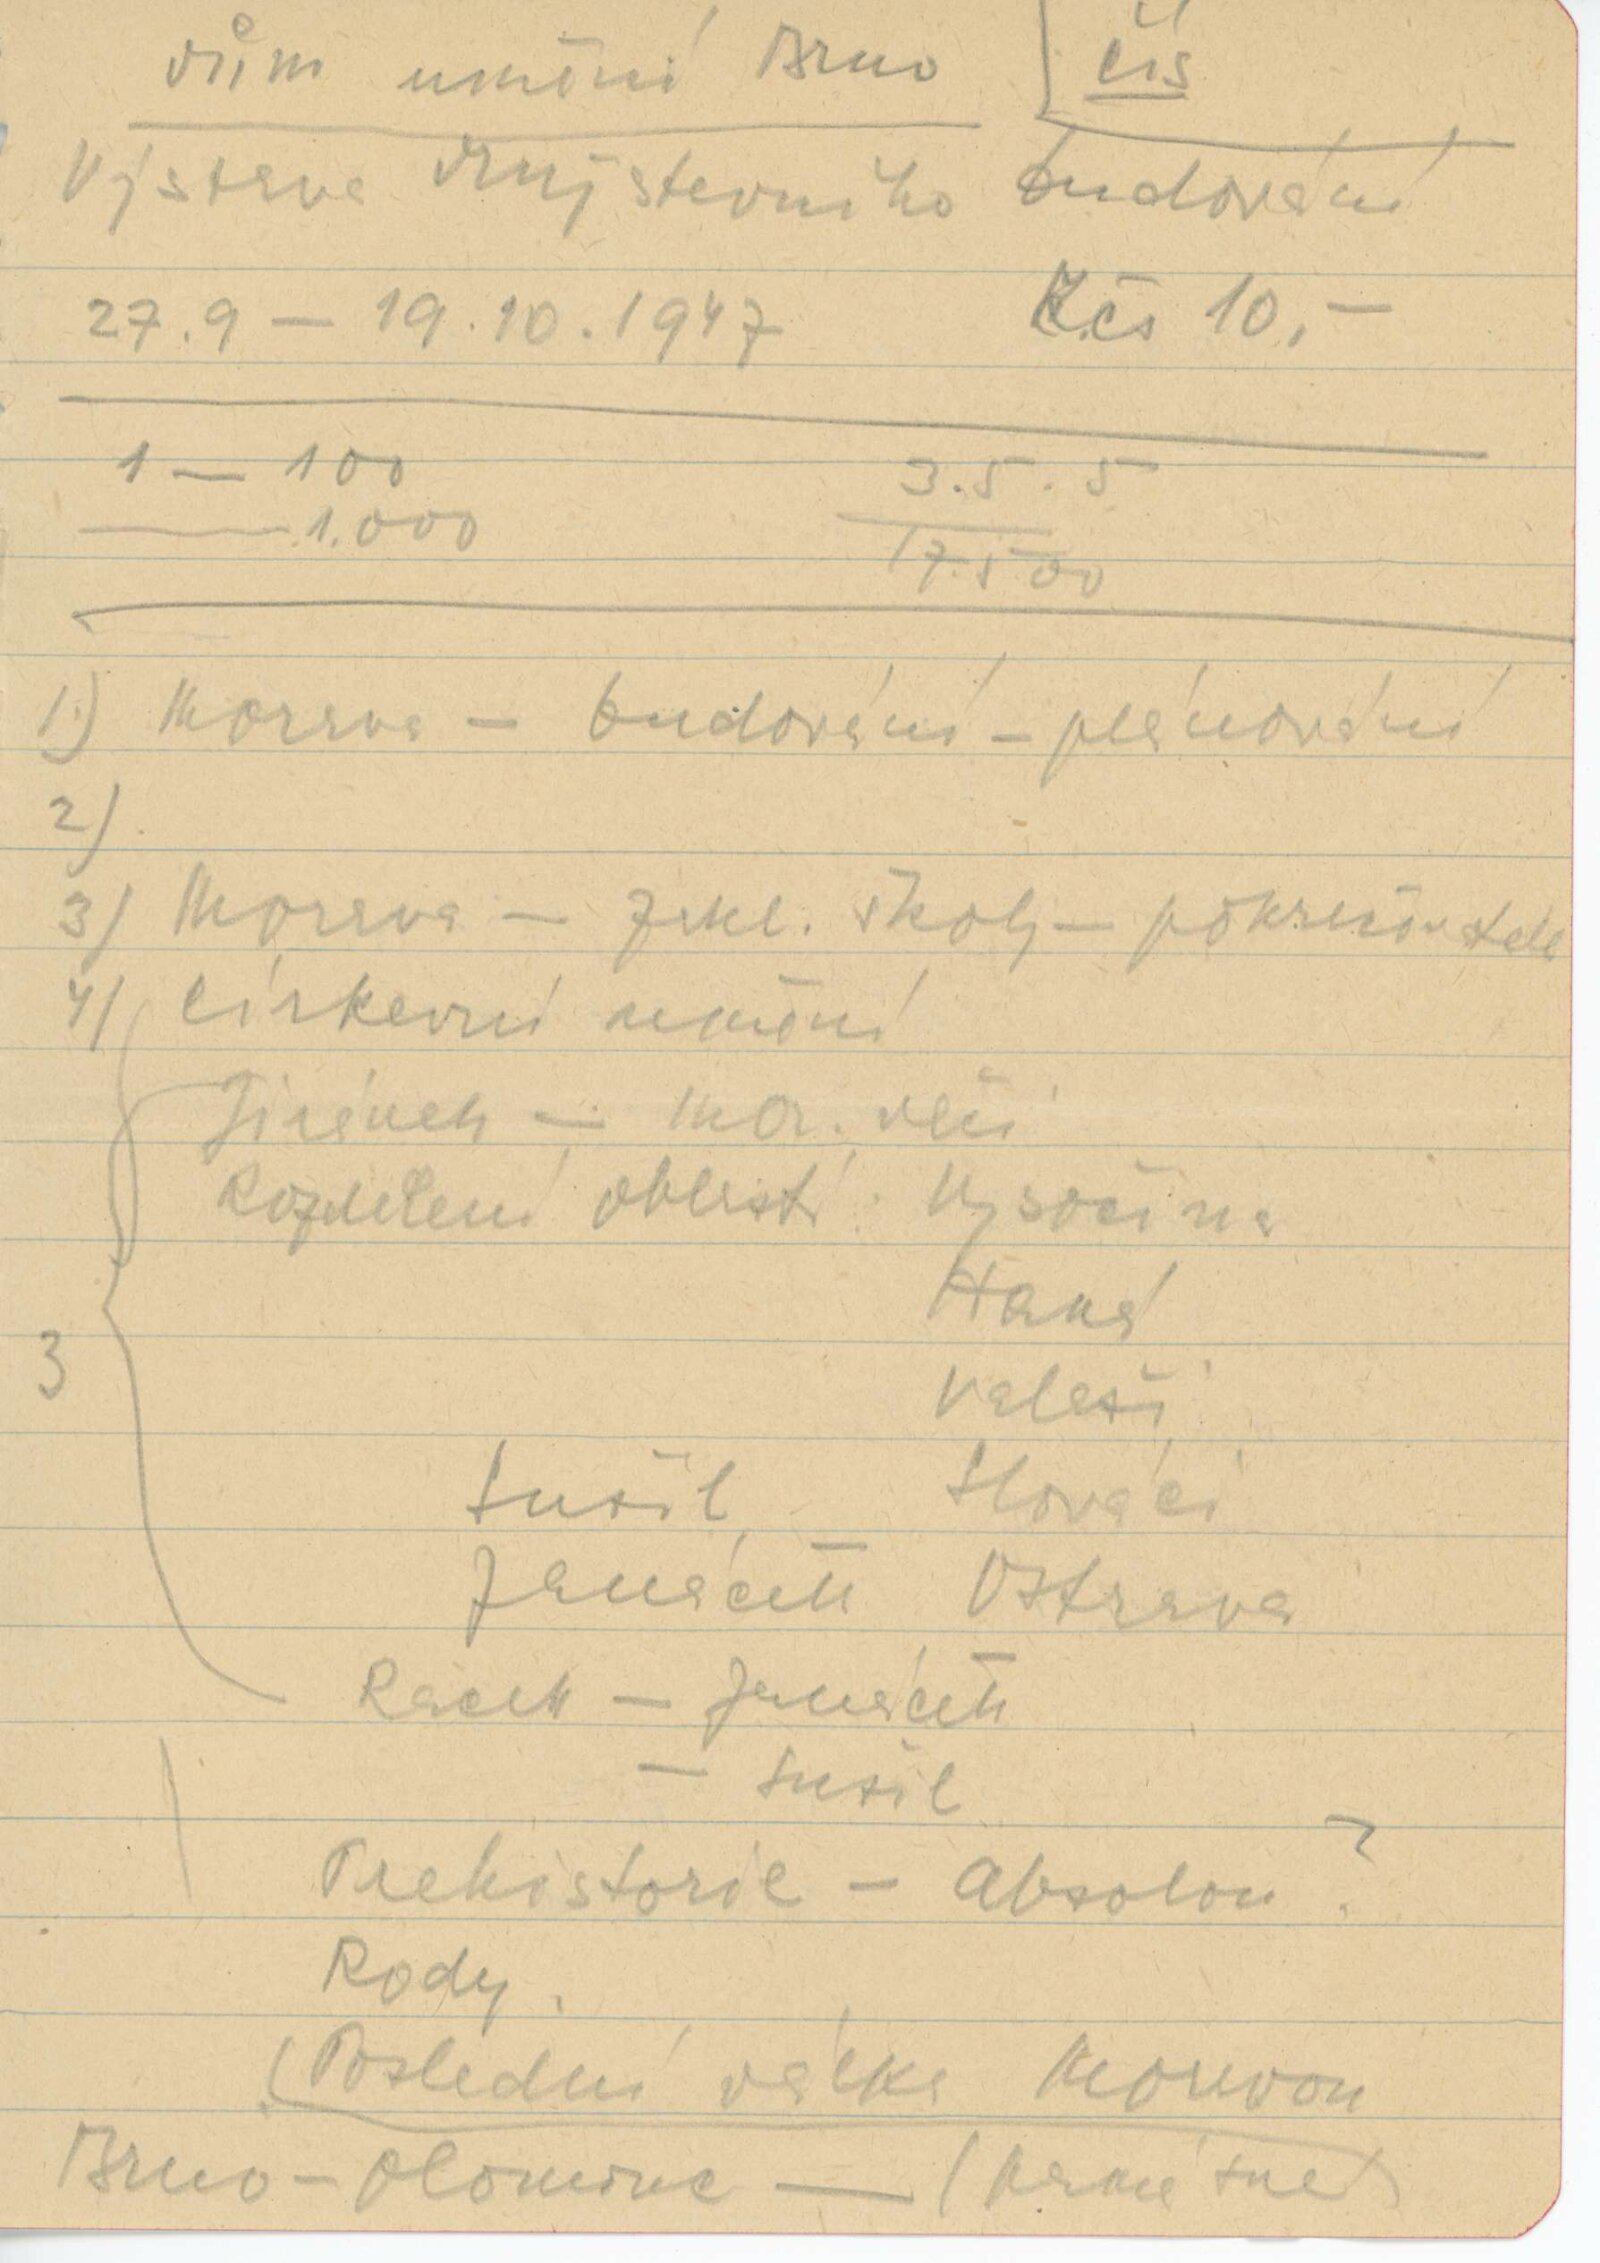 dům umění Brno čís
Výstava družstevního budování
27.9 — 19.10.1947 Kčs 10,—
1 — 100 3.5.5
1.000 17.500
1.) Morava — budování — plánování
2)
3) Morava — zákl. školy —
4) církevní umění
Jiránek — mor. věci
Rozdělení oblastí: Vysočina
Haná
3 Valaši
Sušil Slováci
Janáček Ostrava
Racek — Janáček
— Sušil
Prehistorie — Absolon ?
Rody.
(Poslední válka Moravou
Brno — Olomouc —